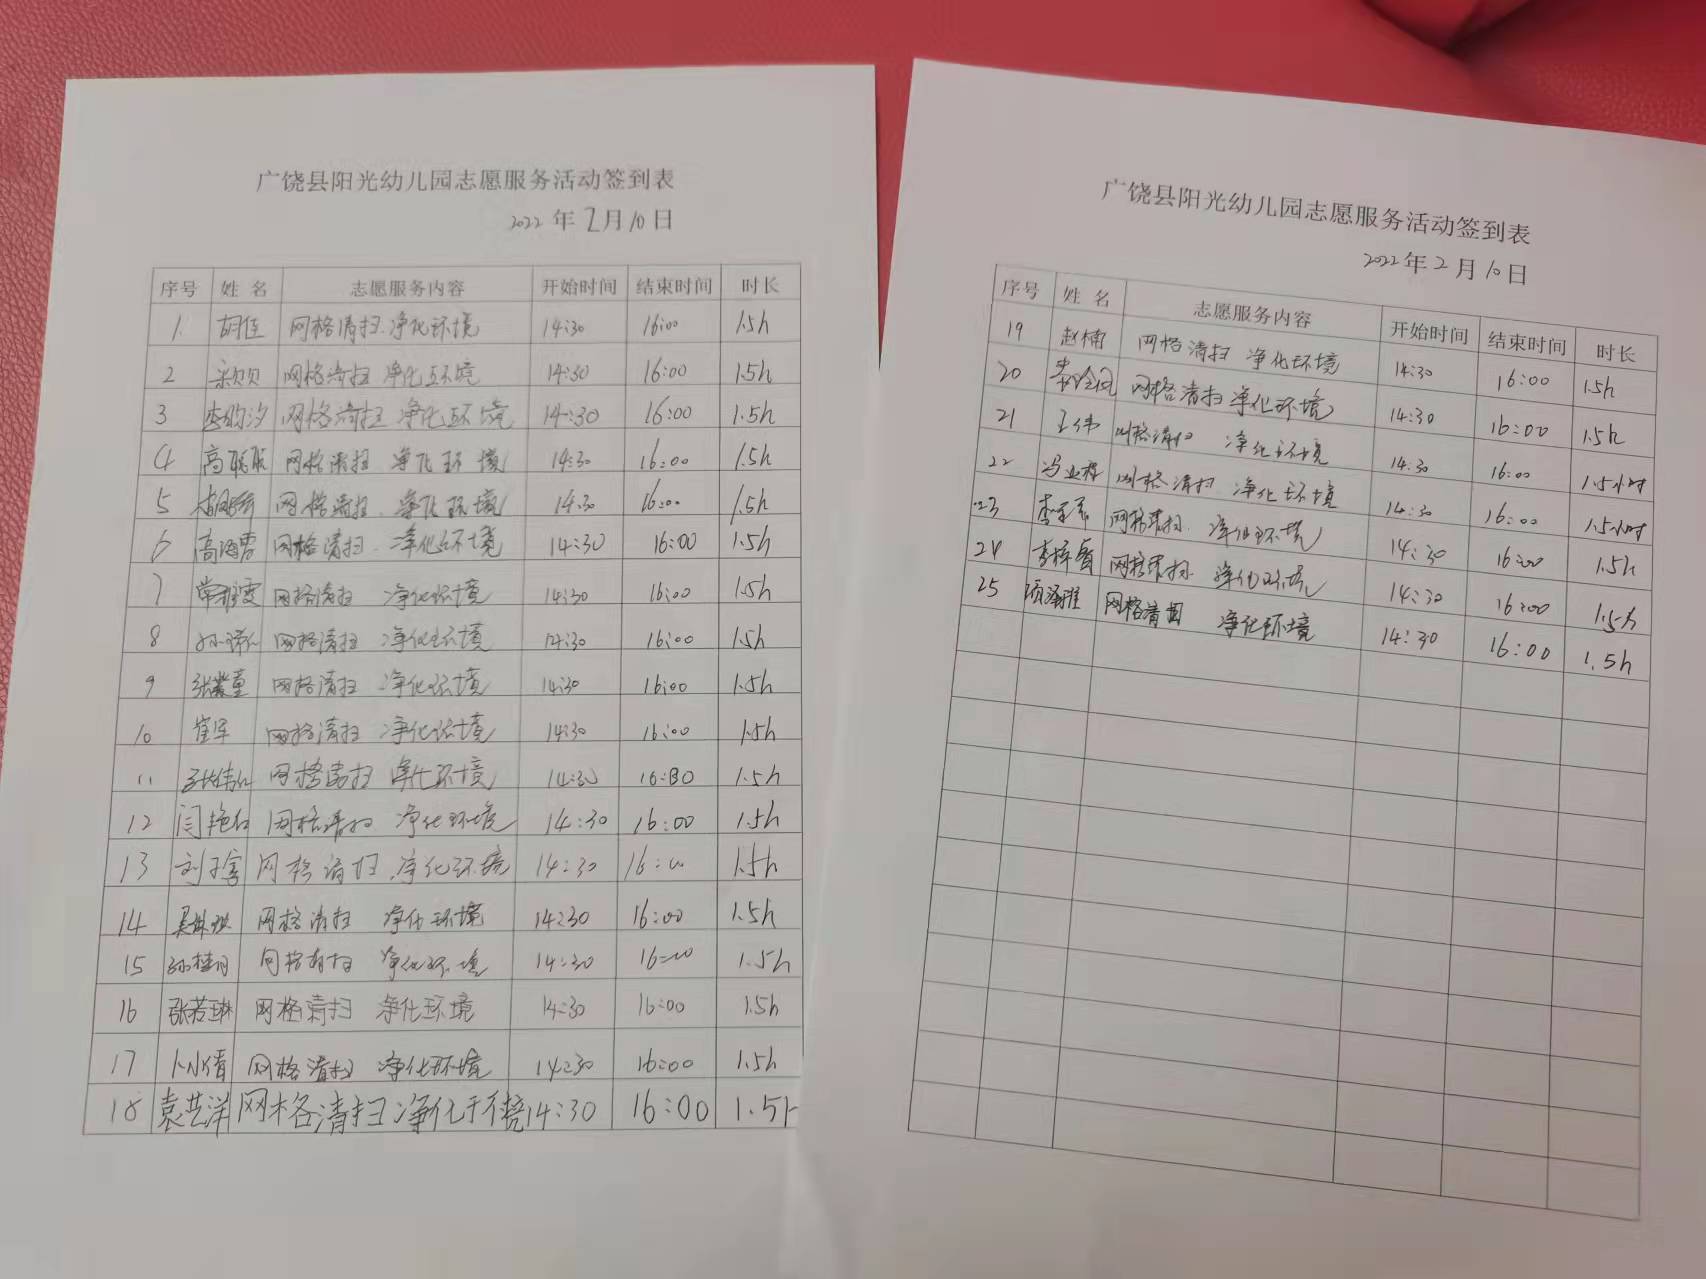 广饶县阳光幼儿园志愿服务活动签到表
2022年2月10日
序号 姓 名 志愿服务内容 开始时间 结束时间 时长
1 胡佳 网格清扫.净化环境 14:30 16:00 1.5h
2 网格清扫 净化环境 14:30 16:00 1.5h
3 网格清扫 净化环境 14:30 16:00 1.5h
4 网格清扫 净化环境 14:30 16:00 1.5h
5 网格清扫.净化环境 14:30 16:00 1.5h
6 网格清扫.净化环境 14:30 16:00 1.5h
7 网格清扫 净化环境 14:30 16:00 1.5h
8 网格清扫 净化环境 14:30 16:00 1.5h
9 网格清扫 净化环境 14:30 16:00 1.5h
10 崔军 网格清扫 净化环境 14:30 16:00 1.5h
11 网格清扫 净化环境 14:30 1.5h
12 闫艳红 网格清扫 净化环境 14:30 16:00 1.5h
13 网格清扫.净化环境 14:30 16:00 1.5h
14 网格清扫 净化环境 14:30 16:00 1.5h
15 净化环境 14:30 16:00 1.5h
16 张若琳 网格清扫 净化环境 14:30 16:00 1.5h
17 卜小倩 网格清扫 净化环境 14:30 16:00 1.5h
18 袁芸洋 网格清扫净化环境 14:30 16:00 1.5h
广饶县阳光幼儿园志愿服务活动签到表
2022年2月10日
序号 姓 名 志愿服务内容 开始时间 结束时间 时长
19 赵楠 网格清扫 净化环境 14:30 16:00 1.5h
20 网格清扫净化环境 14:30 16:00 1.5h
21 王伟 网格清扫 净化环境 14:30 16:00 1.5小时
22 网格清扫 净化环境 14:30 16:00 1.5小时
23 网格清扫.净化环境 14:30 16:00 1.5h
24 网格清扫 净化环境 14:30 16:00 1.5h
25 网格清 净化环境 14:30 16:00 1.5h